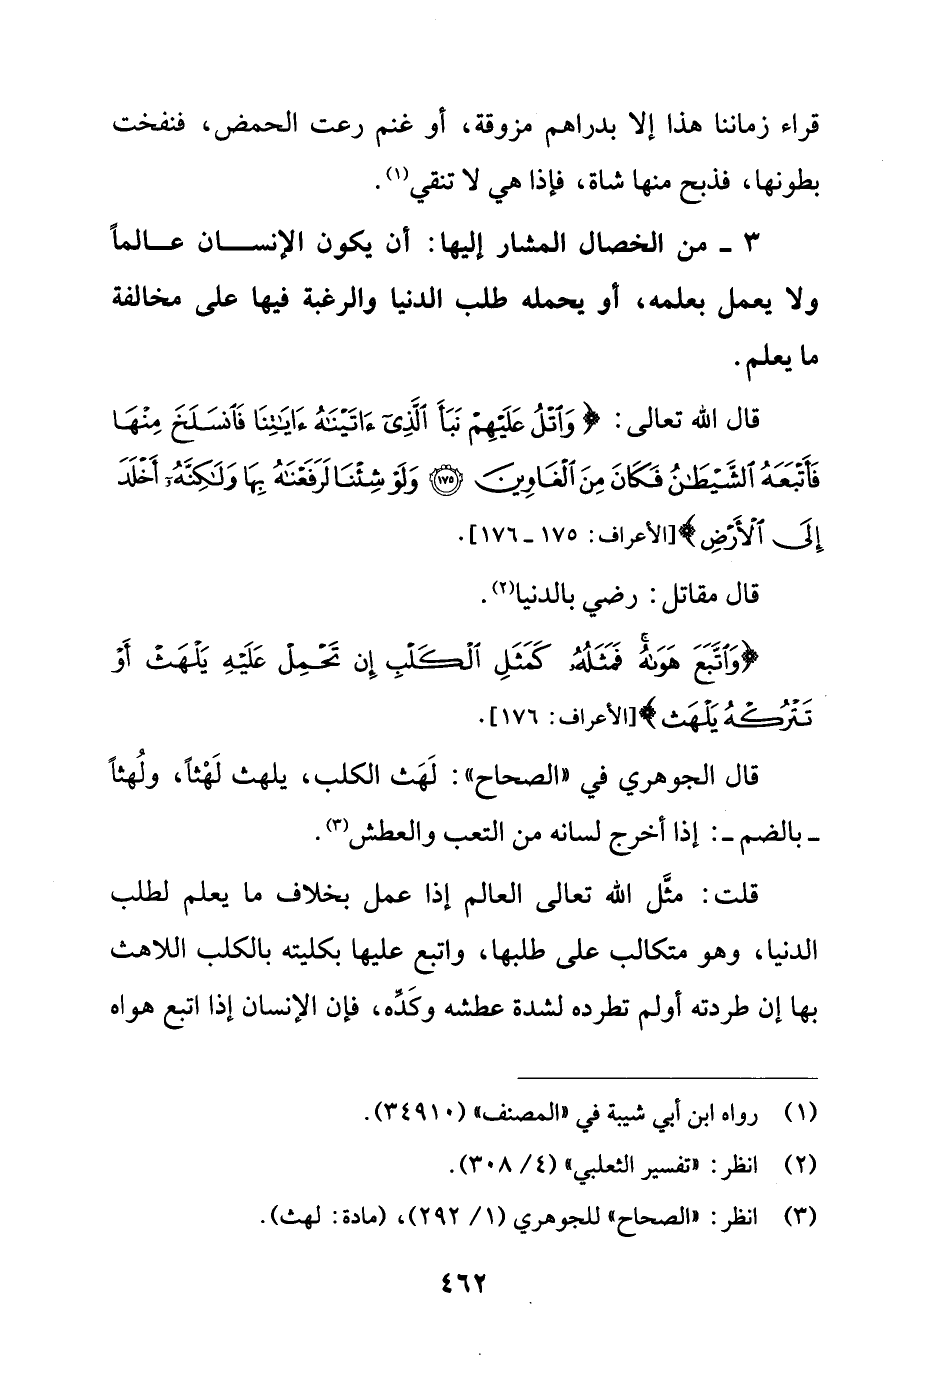 قراء زماننا هذا إلا بدراهم مزوقة، أو غنم رعت الحمض، فنفخت
بطونها، فذبح منها شاة، فإذا هي لا تنقي(١).
٣ ـ من الخصال المشار إليها: أن يكون الإنســـان عــالماً
ولا يعمل بعلمه، أو يحمله طلب الدنيا والرغبة فيها على مخالفة
ما يعلم.
قال الله تعالى: ﴿وَٱتْلُ عَلَيْهِمْ نَبَأَ ٱلَّذِىٓ ءَاتَيْنَٰهُ ءَايَٰتِنَا فَٱنسَلَخَ مِنْهَا
فَأَتْبَعَهُ ٱلشَّيْطَٰنُ فَكَانَ مِنَ ٱلْغَاوِينَ ١٧٥ وَلَوْ شِئْنَا لَرَفَعْنَٰهُ بِهَا وَلَٰكِنَّهُۥٓ أَخْلَدَ
إِلَى ٱلْأَرْضِ﴾[الأعراف: ١٧٥ ـ ١٧٦].
قال مقاتل: رضي بالدنيا(٢).
﴿وَٱتَّبَعَ هَوَىٰهُ ۚ فَمَثَلُهُۥ كَمَثَلِ ٱلْكَلْبِ إِن تَحْمِلْ عَلَيْهِ يَلْهَثْ أَوْ
تَتْرُكْهُ يَلْهَث﴾[الأعراف: ١٧٦].
قال الجوهري في «الصحاح»: لَهَث الكلب، يلهث لَهْثاً، ولُهثاً
ـ بالضم ـ: إذا أخرج لسانه من التعب والعطش(٣).
قلت: مثَّل الله تعالى العالم إذا عمل بخلاف ما يعلم لطلب
الدنيا، وهو متكالب على طلبها، واتبع عليها بكليته بالكلب اللاهث
بها إن طردته أولم تطرده لشدة عطشه وكَدِّه، فإن الإنسان إذا اتبع هواه
(١) رواه ابن أبي شيبة في «المصنف» (٣٤٩١٠).
(٢) انظر: «تفسير الثعلبي» (٤/ ٣٠٨).
(٣) انظر: «الصحاح» للجوهري (١/ ٢٩٢)، (مادة: لهث).
٤٦٢